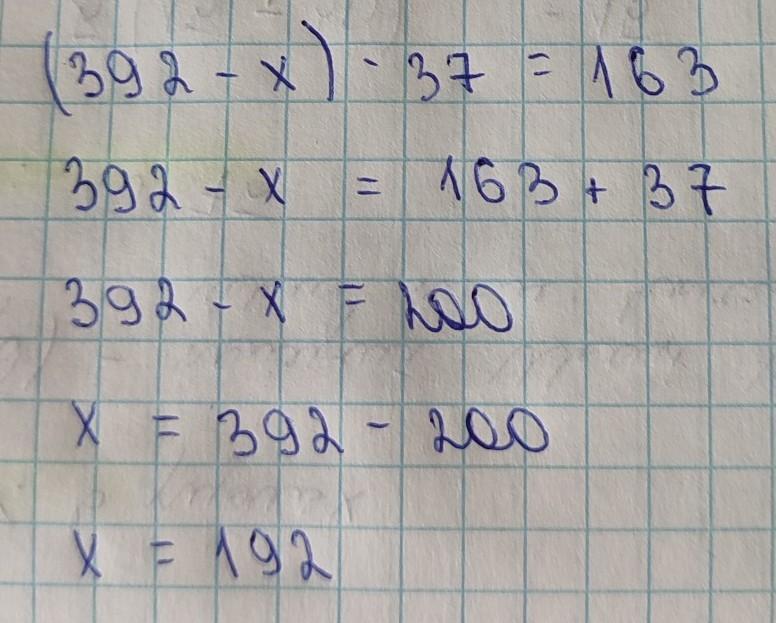 (392 - x) - 37 = 163
392 - x = 163 + 37
392 - x = 200
x = 392 - 200
x = 192